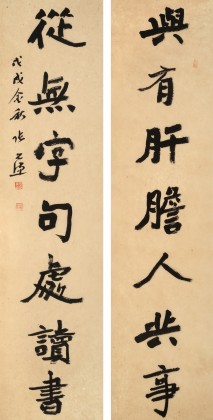 與有肝膽人共事
從無字句處讀書
戊戌金秋張